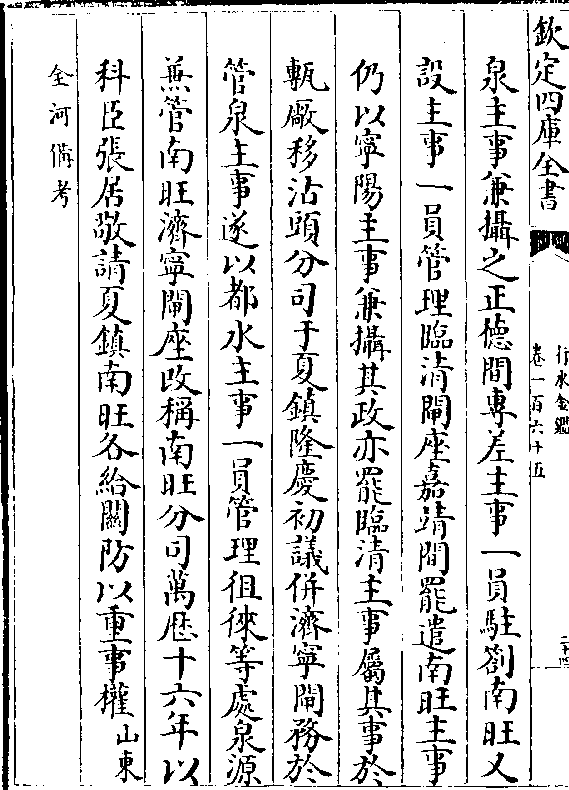 欽定四庫全書
行水金鑑
卷一百六十五
二十四
泉主事兼攝之正德間專差主事一員駐劄南旺又
設主事一員管理臨清閘座嘉靖間罷遣南旺主事
仍以寧陽主事兼攝其政亦罷臨清主事屬其事於
甎廠移沽頭分司于夏鎮隆慶初議併濟寧閘務於
管泉主事遂以都水主事一員管理徂徠等處泉源
兼管南旺濟寧閘座改稱南旺分司萬歷十六年以
科臣張居敬請夏鎮南旺各給關防以重事權山東
全河備考